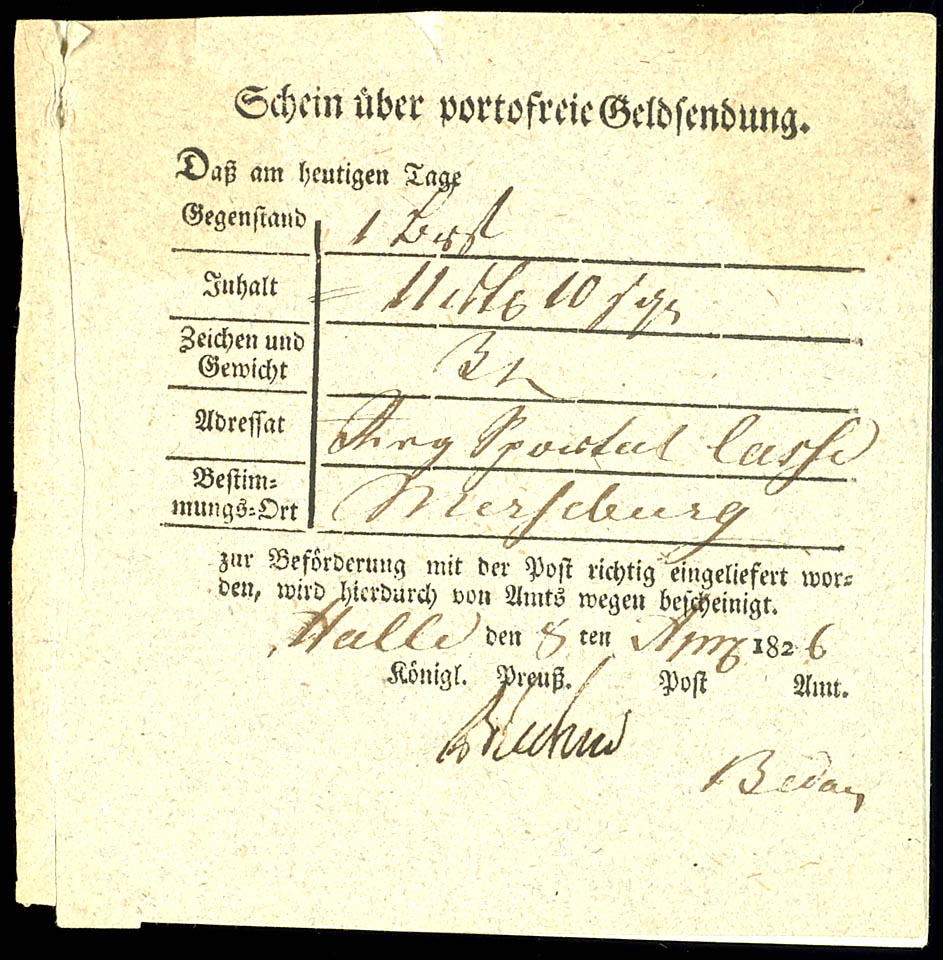 Schein über portofreie Geldsendung.
Daß am heutigen Tage
Gegenstand 1 Brf
Inhalt 11 rtlr 10 sgr
Zeichen und
Gewicht
Adressat Sportul Casse
Bestim-
mungs-Ort Merseburg
zur Beförderung mit der Post richtig eingeliefert wor-
den, wird hierdurch von Amts wegen bescheinigt.
Halle den 8 ten Apr 1826
Königl. Preuß. Post Amt.